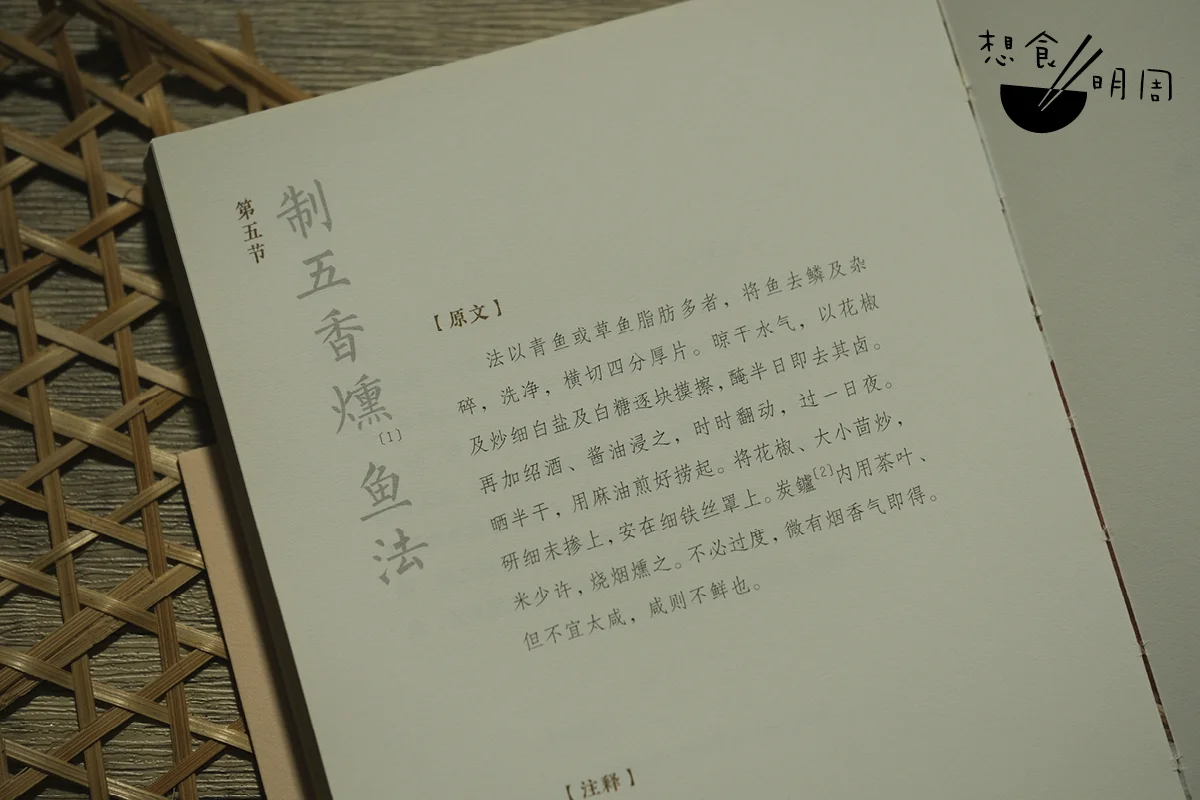 想食
明周
第五节
制五香燻[1]鱼法
【原文】
法以青鱼或草鱼脂肪多者，将鱼去鳞及杂
碎，洗净，横切四分厚片。晾干水气，以花椒
及炒细白盐及白糖逐块摸擦，醃半日即去其卤。
再加绍酒、酱油浸之，时时翻动，过一日夜。
晒半干，用麻油煎好捞起。将花椒、大小茴炒，
研细末掺上，安在细铁丝罩上。炭鑪[2]内用茶叶、
米少许，烧烟燻之。不必过度，微有烟香气即得。
但不宜太咸，咸则不鲜也。
【注释】